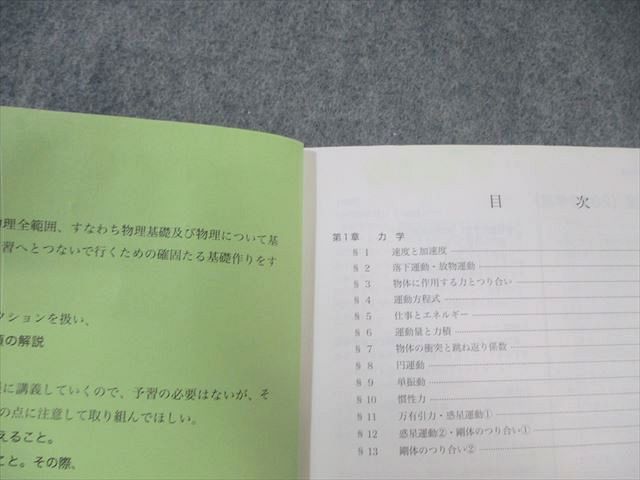 理全範囲、すなわち物理基礎及び物理について基
習へとつないで行くための確固たる基礎作りをす
クションを扱い、
の解説
に講義していくので、予習の必要はないが、そ
の点に注意して取り組んでほしい。
えること。
こと。その際、
目 次
第1章 力 学
§ 1 速度と加速度
§ 2 落下運動・放物運動
§ 3 物体に作用する力とつり合い
§ 4 運動方程式
§ 5 仕事とエネルギー
§ 6 運動量と力積
§ 7 物体の衝突と跳ね返り係数
§ 8 円運動
§ 9 単振動
§ 10 慣性力
§ 11 万有引力・惑星運動①
§ 12 惑星運動②・剛体のつり合い①
§ 13 剛体のつり合い②